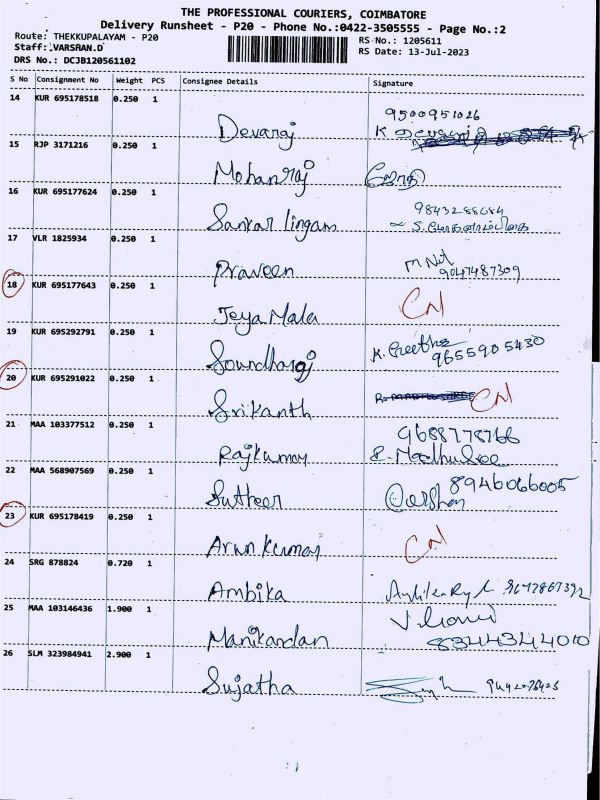 THE PROFESSIONAL COURIERS, COIMBATORE
Delivery Runsheet - P20 - Phone No.:0422-3505555 - Page No.:2
Route: THEKKUPALAYAM - P20
RS No.: 1205611
Staff:.VARSHAN.D
RS Date: 13-Jul-2023
DRS No.: DCJB120561102
S No Consignment No Weight PCS Consignee Details Signature
14 KUR 695178518 0.250 1
9500951026
Devaraj K
15 RJP 3171216 0.250 1
Mohanraj
16 KUR 695177624 0.250 1
Sankar lingam
17 VLR 1825934 0.250 1
Praveen
9047487309
18 KUR 695177643 0.250 1
Jeya Mala CN
19 KUR 695292791 0.250 1
Soundharaj K. Geetha 9655905430
20 KUR 695291022 0.250 1
Srikanth CN
21 MAA 103377512 0.250 1
9688778766
Rajkumar R. Madhusree
22 MAA 568907569 0.250 1
8946066005
Sutheer Darshan
23 KUR 695178419 0.250 1
Arun kumar CN
24 SRG 878824 0.720 1
Ambika
25 MAA 103146436 1.900 1
Manikandan 8344344010
26 SLM 323984941 2.900 1
Sujatha